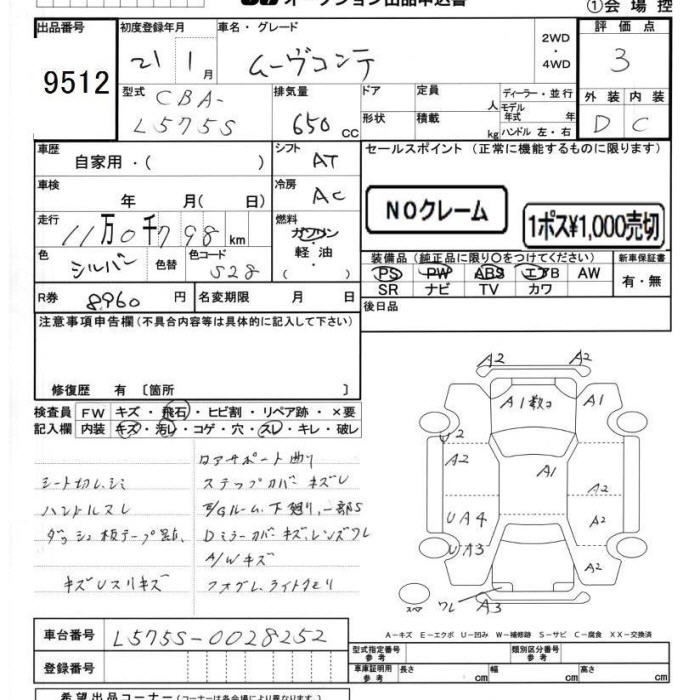 オークション出品申込書
①会場控
出品番号 初度登録年月 車名・グレード 評価点
9512 21 1月 ムーヴコンテ 2WD・4WD 3
型式 CBA-L575S 排気量 650cc ドア 形状 定員 人 積載 kg ディーラー・並行 モデル年式 年 ハンドル 左・右 外装 D 内装 C
車歴 自家用・( ) シフト AT セールスポイント (正常に機能するものに限ります)
車検 年 月( 日) 冷房 AC NOクレーム 1ポス¥1,000売切
走行 11万0千798km 燃料 ガソリン・軽油( )
色 シルバー 色替 色コード S28 装備品 (純正品に限り○をつけてください) 新車保証書
PS PW ABS エアB AW 有・無
SR ナビ TV カワ
R券 8960円 名変期限 月 日 後日品
注意事項申告欄 (不具合内容等は具体的に記入して下さい)
修復歴 有 〔箇所 〕
検査員 FW キズ・飛石・ヒビ割・リペア跡・×要
記入欄 内装 キズ・汚レ・コゲ・穴・スレ・キレ・破レ
リアサポート曲り
シート切レ、シミ ステップカバーキズレ
ハンドルスレ F/Gルーム、下廻り、一部S
ダッシュ板テープ跡、 Dミラーカバーキズ、レンズワレ
A/Wキズ
キズUスリキズ フォグL、ライトクモリ
A2 A2
A1数コ A1
U2
A2 A1 A2
UA4 A2
UA3 A2
スペア ワレ A3
A-キズ E-エクボ U-凹み W-補修跡 S-サビ C-腐食 XX-交換済
車台番号 L575S-0028252 型式指定番号 参考 類別区分番号 参考
登録番号 車庫証明用 参考 長さ cm 幅 cm 高さ cm
希望出品コーナー (コーナーは各会場により異なります。)